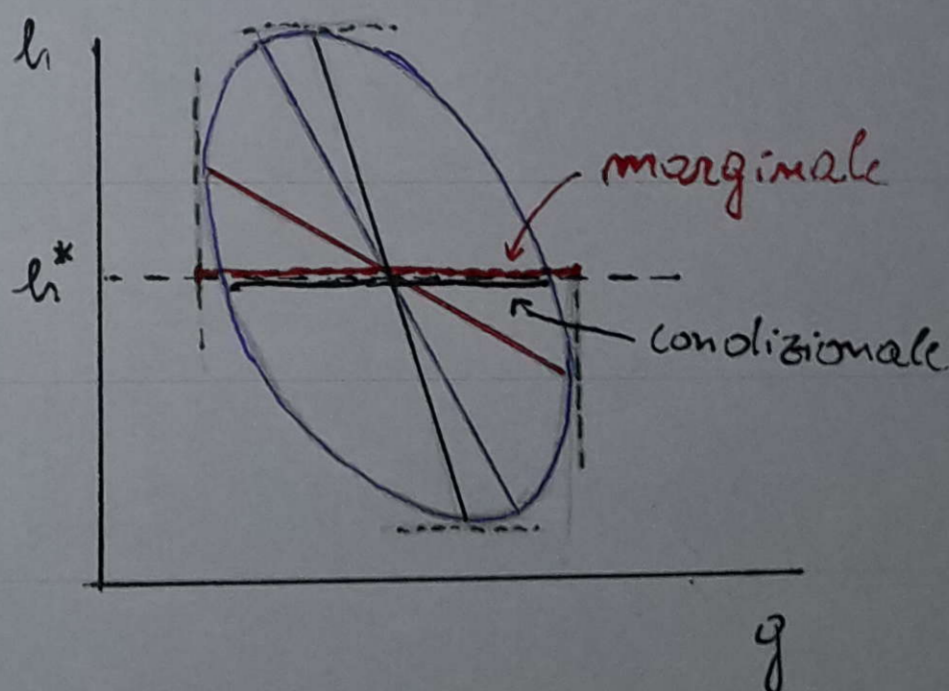 h
marginale
h*
condizionale
g